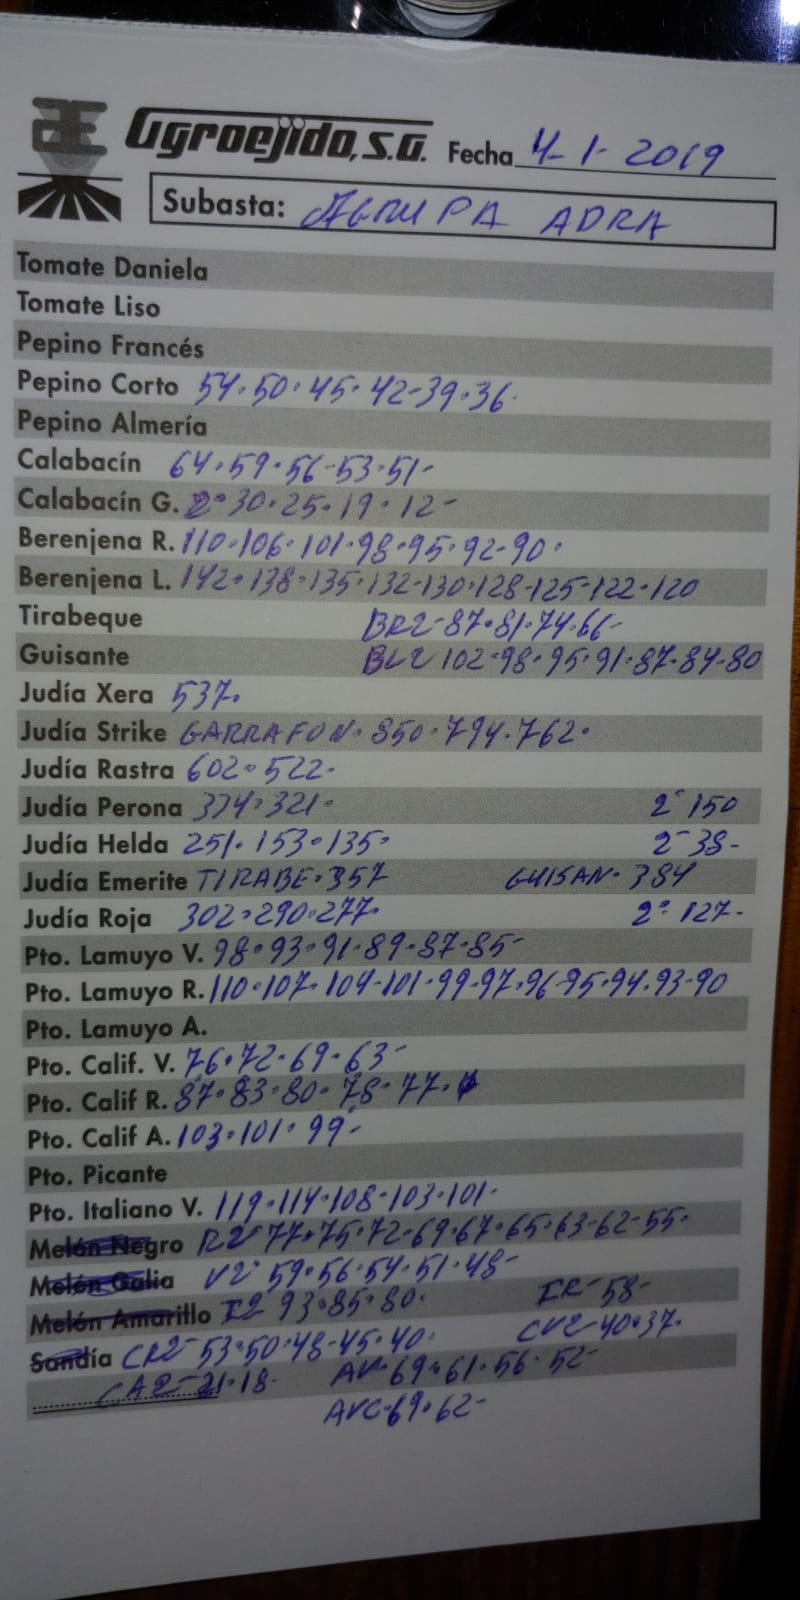 Agroejido, S.A. Fecha 4-1-2019
Subasta: AGRUPA ADRA
Tomate Daniela
Tomate Liso
Pepino Francés
Pepino Corto 54·50·45·42-39·36·
Pepino Almería
Calabacín 64·59·56-53·51-
Calabacín G. 2ª 30·25·19·12-
Berenjena R. 110·106·101·98·95·92-90·
Berenjena L. 142·138·135·132-130·128-125-122·120
Tirabeque BR2-87·81·74·66-
Guisante BL2 102·98·95·91·87·84·80
Judía Xera 537·
Judía Strike GARRAFON·850·794·762·
Judía Rastra 602·522-
Judía Perona 374·321· 2ª 150
Judía Helda 251·153·135· 2ª 38-
Judía Emerite TIRABE·357 GUISAN·384
Judía Roja 302·290·277· 2ª 127-
Pto. Lamuyo V. 98·93·91·89·87·85-
Pto. Lamuyo R. 110·107·104-101-99-97·96-95-94·93-90
Pto. Lamuyo A.
Pto. Calif. V. 76·72·69·63-
Pto. Calif R. 87·83·80·78·77·
Pto. Calif A. 103·101·99-
Pto. Picante
Pto. Italiano V. 119·114·108-103·101-
Melón Negro R2-77·75·72-69·67·65·63-62-55·
Melón Galia V2-59·56·54·51·48-
Melón Amarillo I2 93·85·80· IR-58-
Sandía CR2-53·50·48-45·40· CV2-40·37·
CA2-21·18· AV-69·61·56·52-
AVC-69·62-